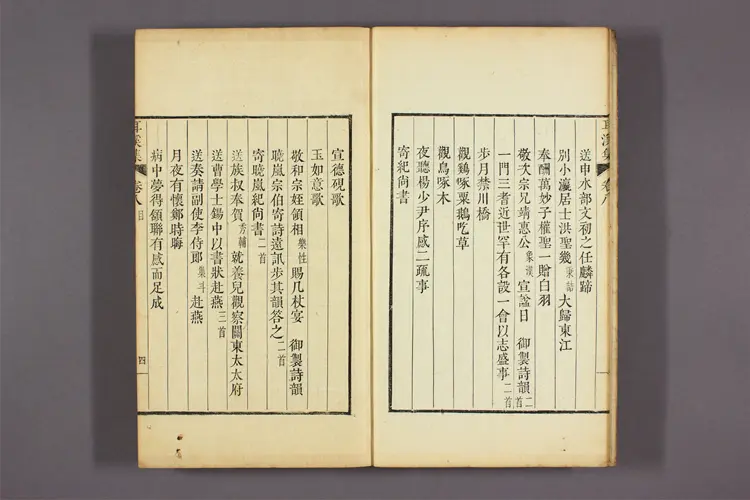 耳溪集 卷八
送申水部文初之任麟蹄
別小瀛居士洪聖幾秉喆大歸東江
奉酬萬妙子權聖一贈白羽
敬次宗兄靖惠公象漢宣諡日 御製詩韻二首
一門三耆近世罕有各設一會以志盛事二首
步月禁川橋
觀鷄啄粟鵝吃草
觀鳥啄木
夜聽楊少尹序感二疏事
寄紀尙書
宣德硯歌
玉如意歌
敬和宗姪領相樂性賜几杖宴 御製詩韻
曉嵐宗伯寄詩遠訊步其韻答之二首
寄曉嵐紀尙書二首
送族叔奉賀秀輔就養兒觀察關東太太府
送曹學士鍚中以書狀赴燕三首
送奏請副使李侍郞集斗赴燕
月夜有懷鄭時晦
病中夢得領聯有感而足成
耳溪集 卷八 目 四